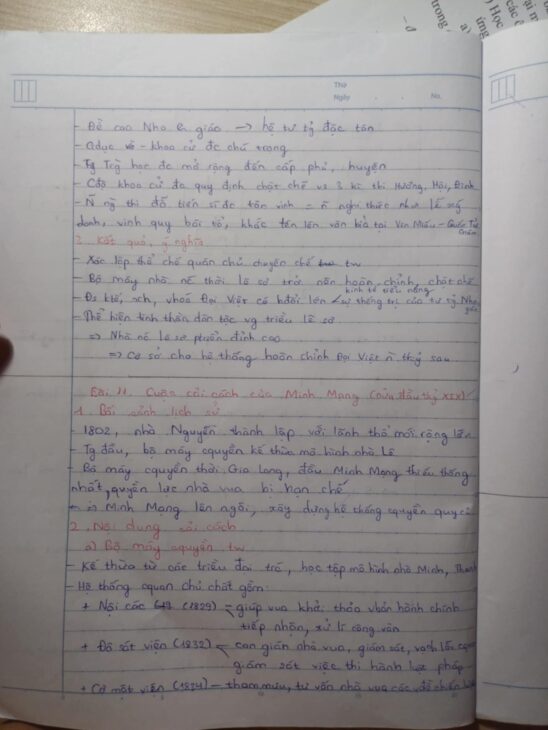 ại m
các c
ứng
) Học
trong
a)
Thứ
Ngày No.
- Đề cao Nho giáo → hệ tư tg độc tôn
- Gdục và khoa cử đc chú trọng
- Tg Tcg học đc mở rộng đến cấp phủ, huyện
- Cđộ khoa cử đc quy định chặt chẽ vs 3 kì thi Hương, Hội, Đình
- Ñ ng thi đỗ tiến sĩ đc tôn vinh = ñ nghi thức như lễ xg
danh, vinh quy bái tổ, khắc tên lên văn bia tại Văn Miếu - Quốc Tử
Giám
3. Kết quả, ý nghĩa
- Xác lập thể chế quân chủ chuyên chế tw
- Bộ máy nhà nc thời lê sơ trở nên hoàn chỉnh, chặt chẽ
kinh tế tiểu nông
- Đs ktế, xh, vhoá Đại Việt có bđổi lớn sự thống trị của tư tg Nho
giáo
- Thể hiện tinh thần dân tộc vg triều lê sơ
⇒ Nhà nc lê sơ phát đỉnh cao
⇒ Cơ sở cho hệ thống hoàn chỉnh Đại Việt ñ thg sau
Bài 11. Cuộc cải cách của Minh Mạng (nửa đầu tkỷ XIX)
1. Bối cảnh lịch sử
- 1802, nhà Nguyễn thành lập với lãnh thổ mở rộng lớn
- Tg đầu, bộ máy cquyền kế thừa mô hình nhà Lê
- Bộ máy cquyền thời Gia Long, đầu Minh Mạng thiếu thống
nhất, quyền lực nhà vua bị hạn chế
⇒ Minh Mạng lên ngôi, xây dựng hệ thống cquyền quy củ
2. Nội dung cải cách
a) Bộ máy cquyền tw
- Kế thừa từ các triều đại trc, học tập mô hình nhà Minh, Thanh
- Hệ thống cquan chủ chốt gồm:
+ Nội các (1829) - giúp vua khởi thảo vbản hành chính
tiếp nhận, xử lí công văn
+ Đô sát viện (1832) - can gián nhà vua, giám sát, vạch lỗi cquan
giám sát việc thi hành luật pháp
+ Cơ mật viện (1834) - tham mưu, tư vấn nhà vua các vđề chiến lược